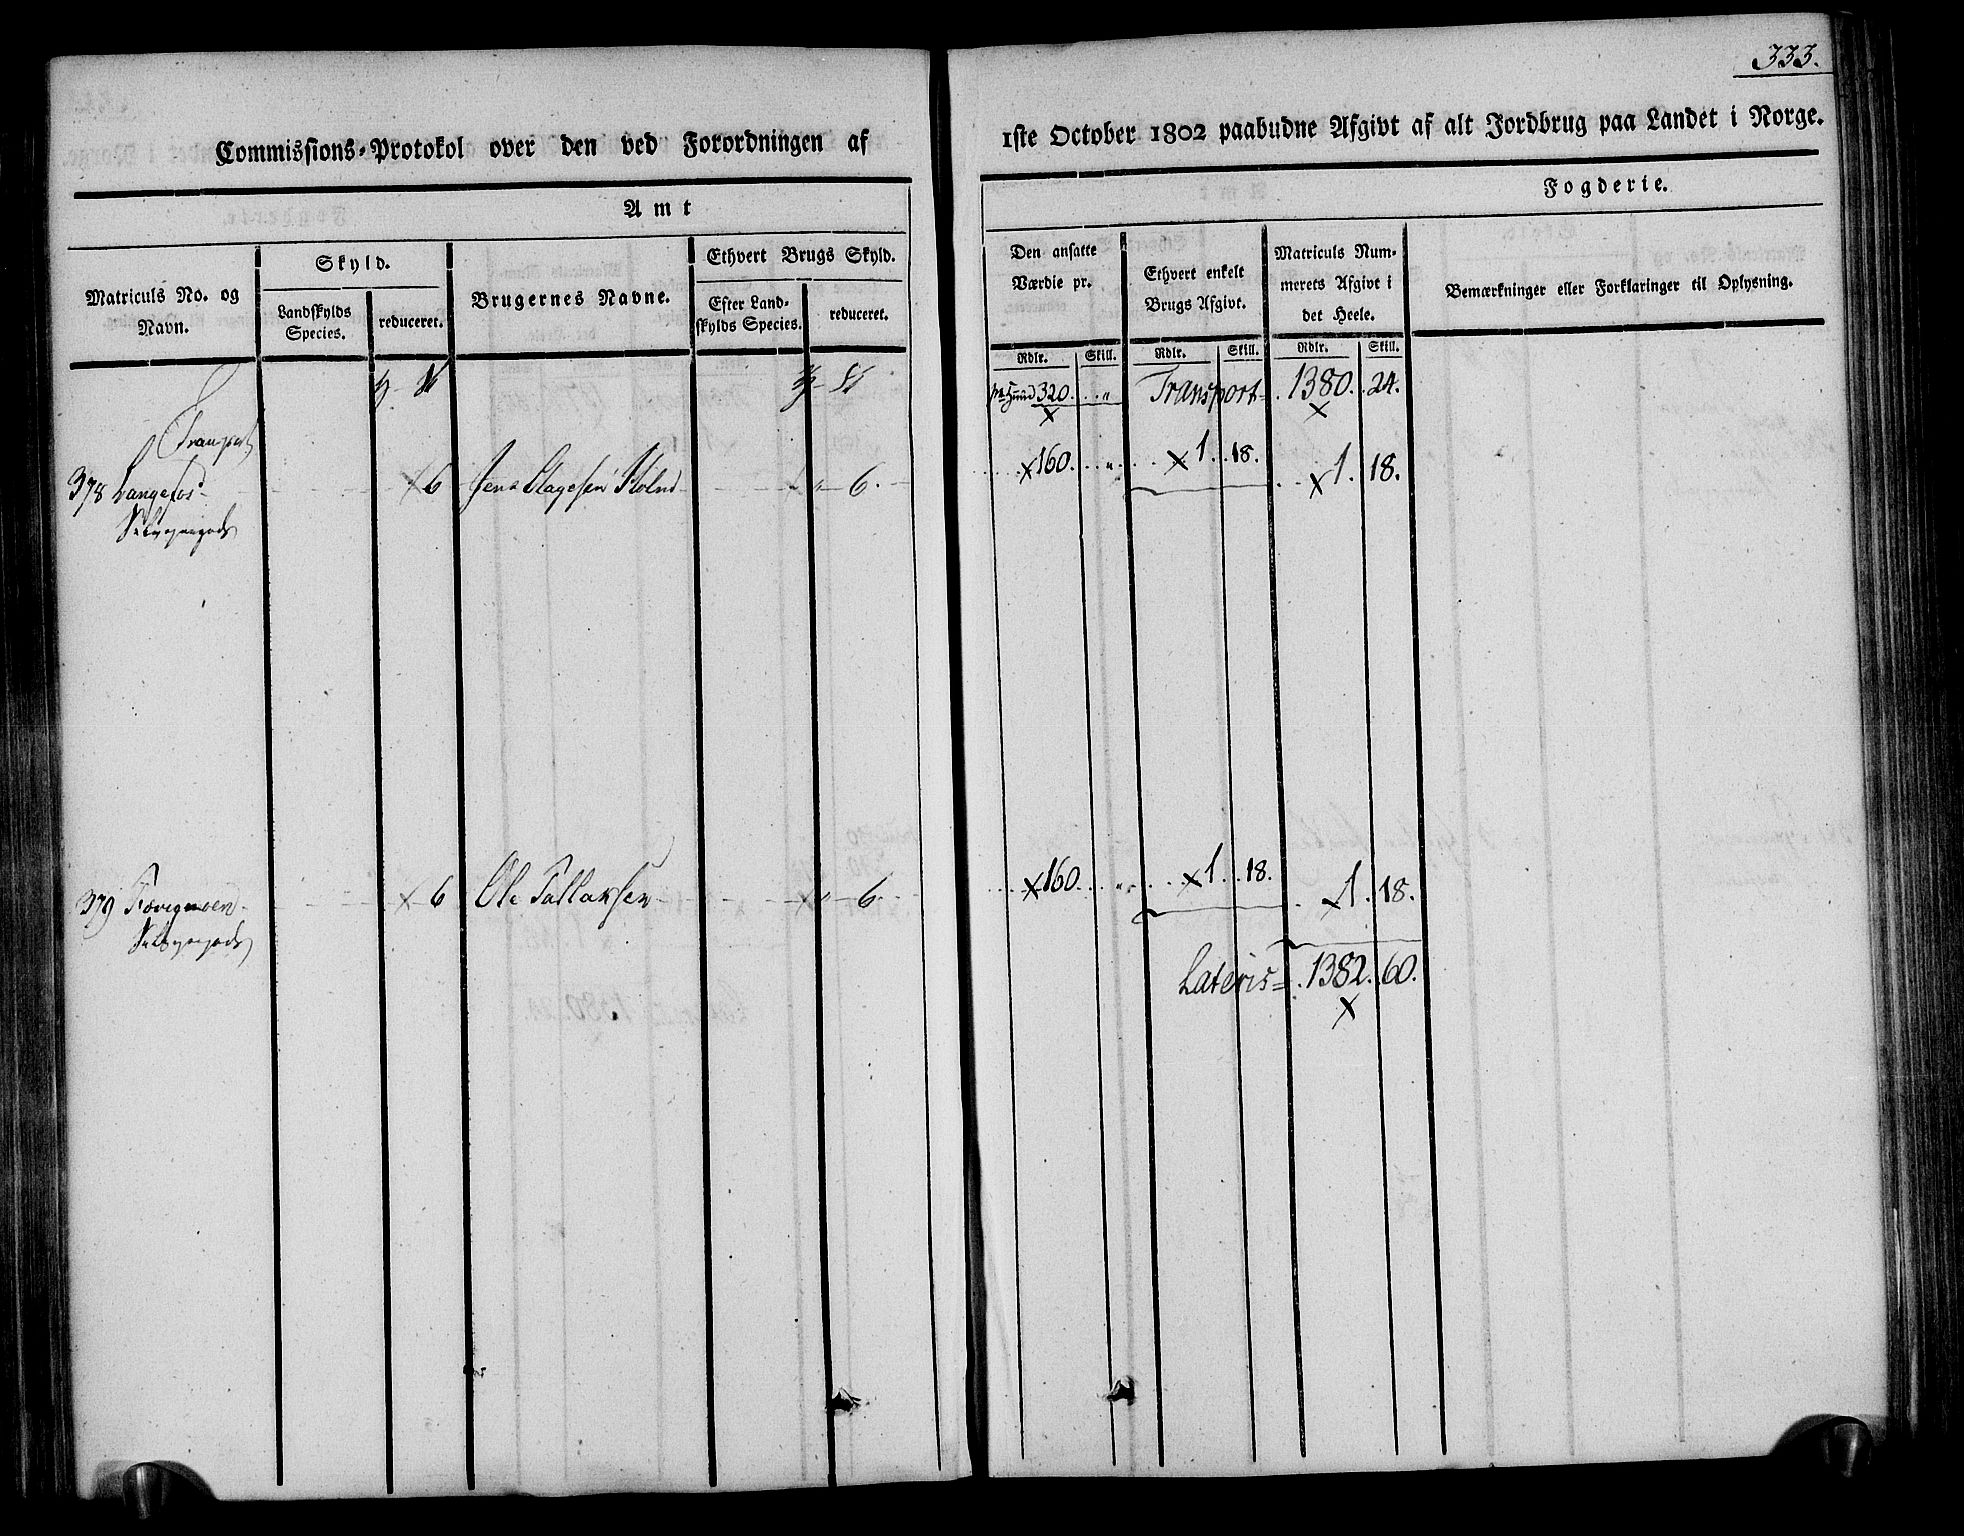 333.
Commissions-Protokol over den ved Forordningen af 1ste October 1802 paabudne Afgivt af alt Jordbrug paa Landet i Norge.
Amt
Fogderie.
Matriculs No. og Navn.
Skyld.
Landskylds Species.
reduceret.
Brugernes Navne.
Ethvert Brugs Skyld.
Efter Landskylds Species.
reduceret.
Den ansatte Værdie pr.
Rdlr. Skill.
Ethvert enkelt Brugs Afgivt.
Rdlr. Skill.
Matriculs Nummerets Afgivt i det Heele.
Rdlr. Skill.
Bemærkninger eller Forklaringer til Oplysning.
Transport
320. Transport 1380. 24.
378 Langefos 6 6. 160. 1. 18. 1. 18.
379 6 Ole Tallaksen 6. 160. 1. 18. 1. 18.
Lateris 1382. 60.